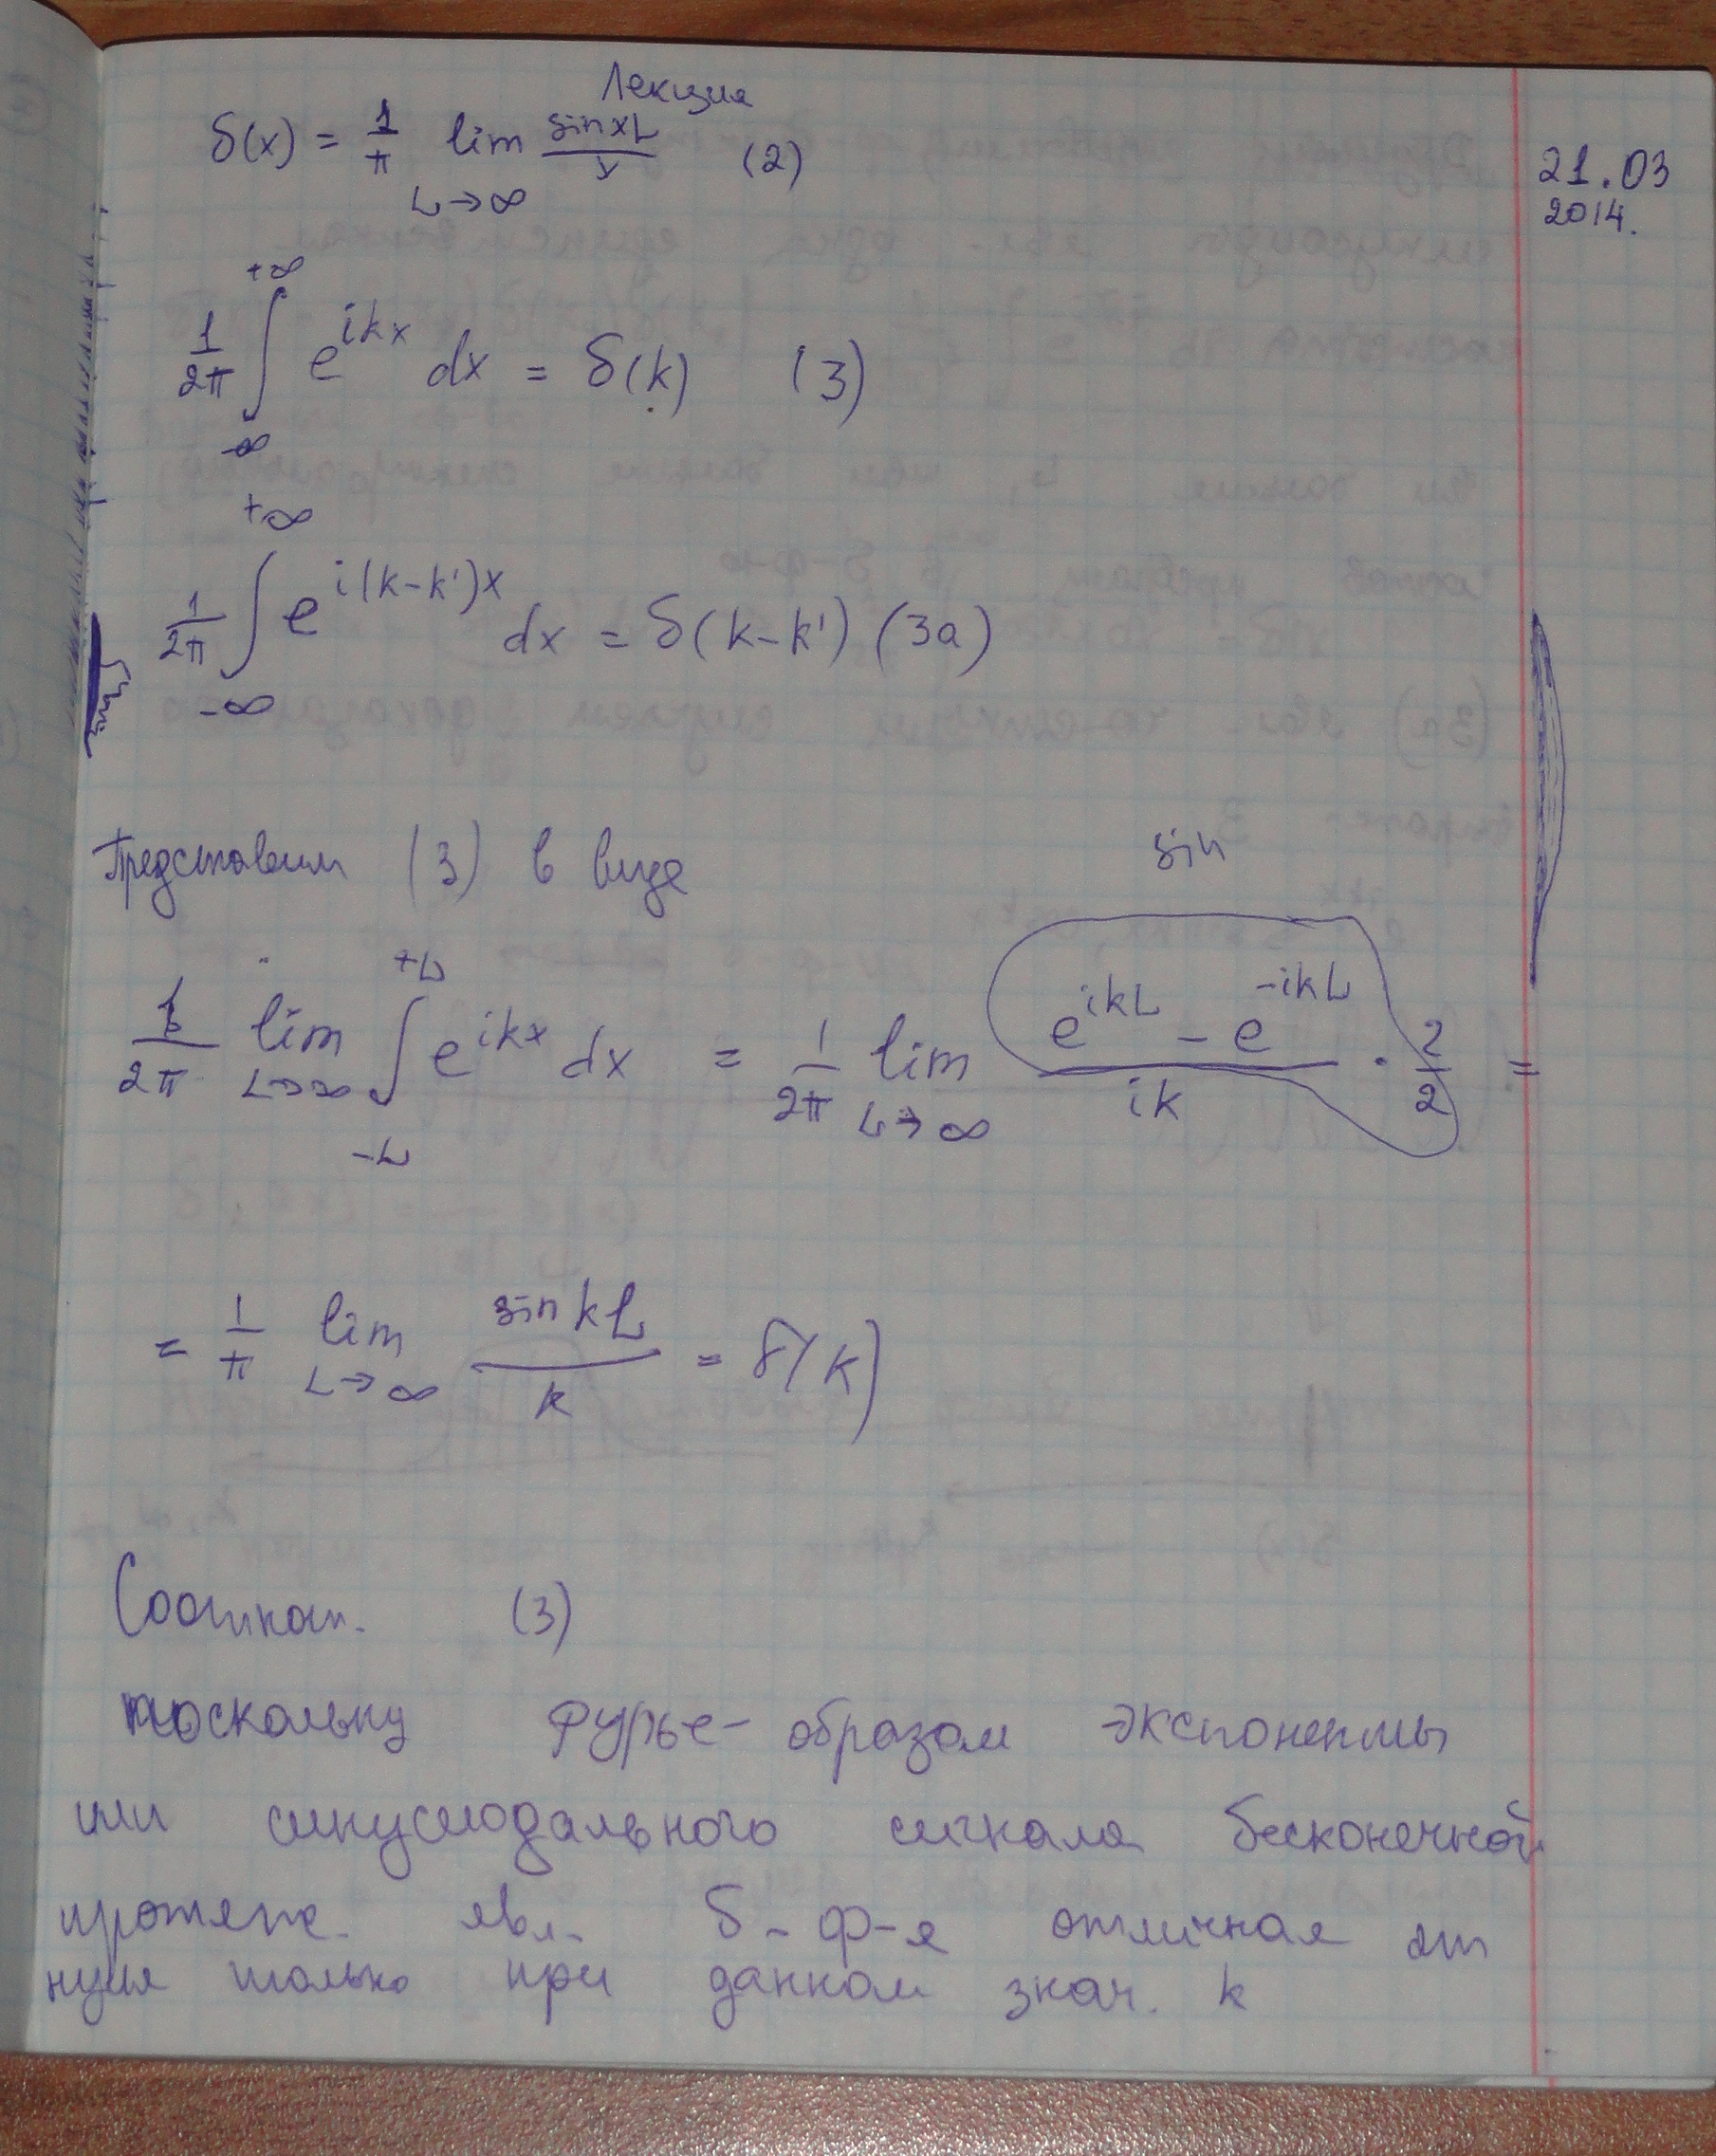 Лекция
δ(x) = 1/π lim L→∞ sin xL / x (2)
21.03
2014.
1/2π ∫ −∞ +∞ e^{ikx} dx = δ(k) (3)
1/2π ∫ −∞ +∞ e^{i(k−k')x} dx = δ(k−k') (3а)
Представим (3) в виде
sin
1/2π lim L→∞ ∫ −L +L e^{ikx} dx = 1/2π lim L→∞ (e^{ikL} − e^{−ikL}) / ik · 2/2 =
= 1/π lim L→∞ sin kL / k = δ(k)
(3)
поскольку фурье-образом экспоненты
или синусоидального сигнала бесконечной
протяж. явл. δ-ф-я отличная от
нуля только при данном знач. k